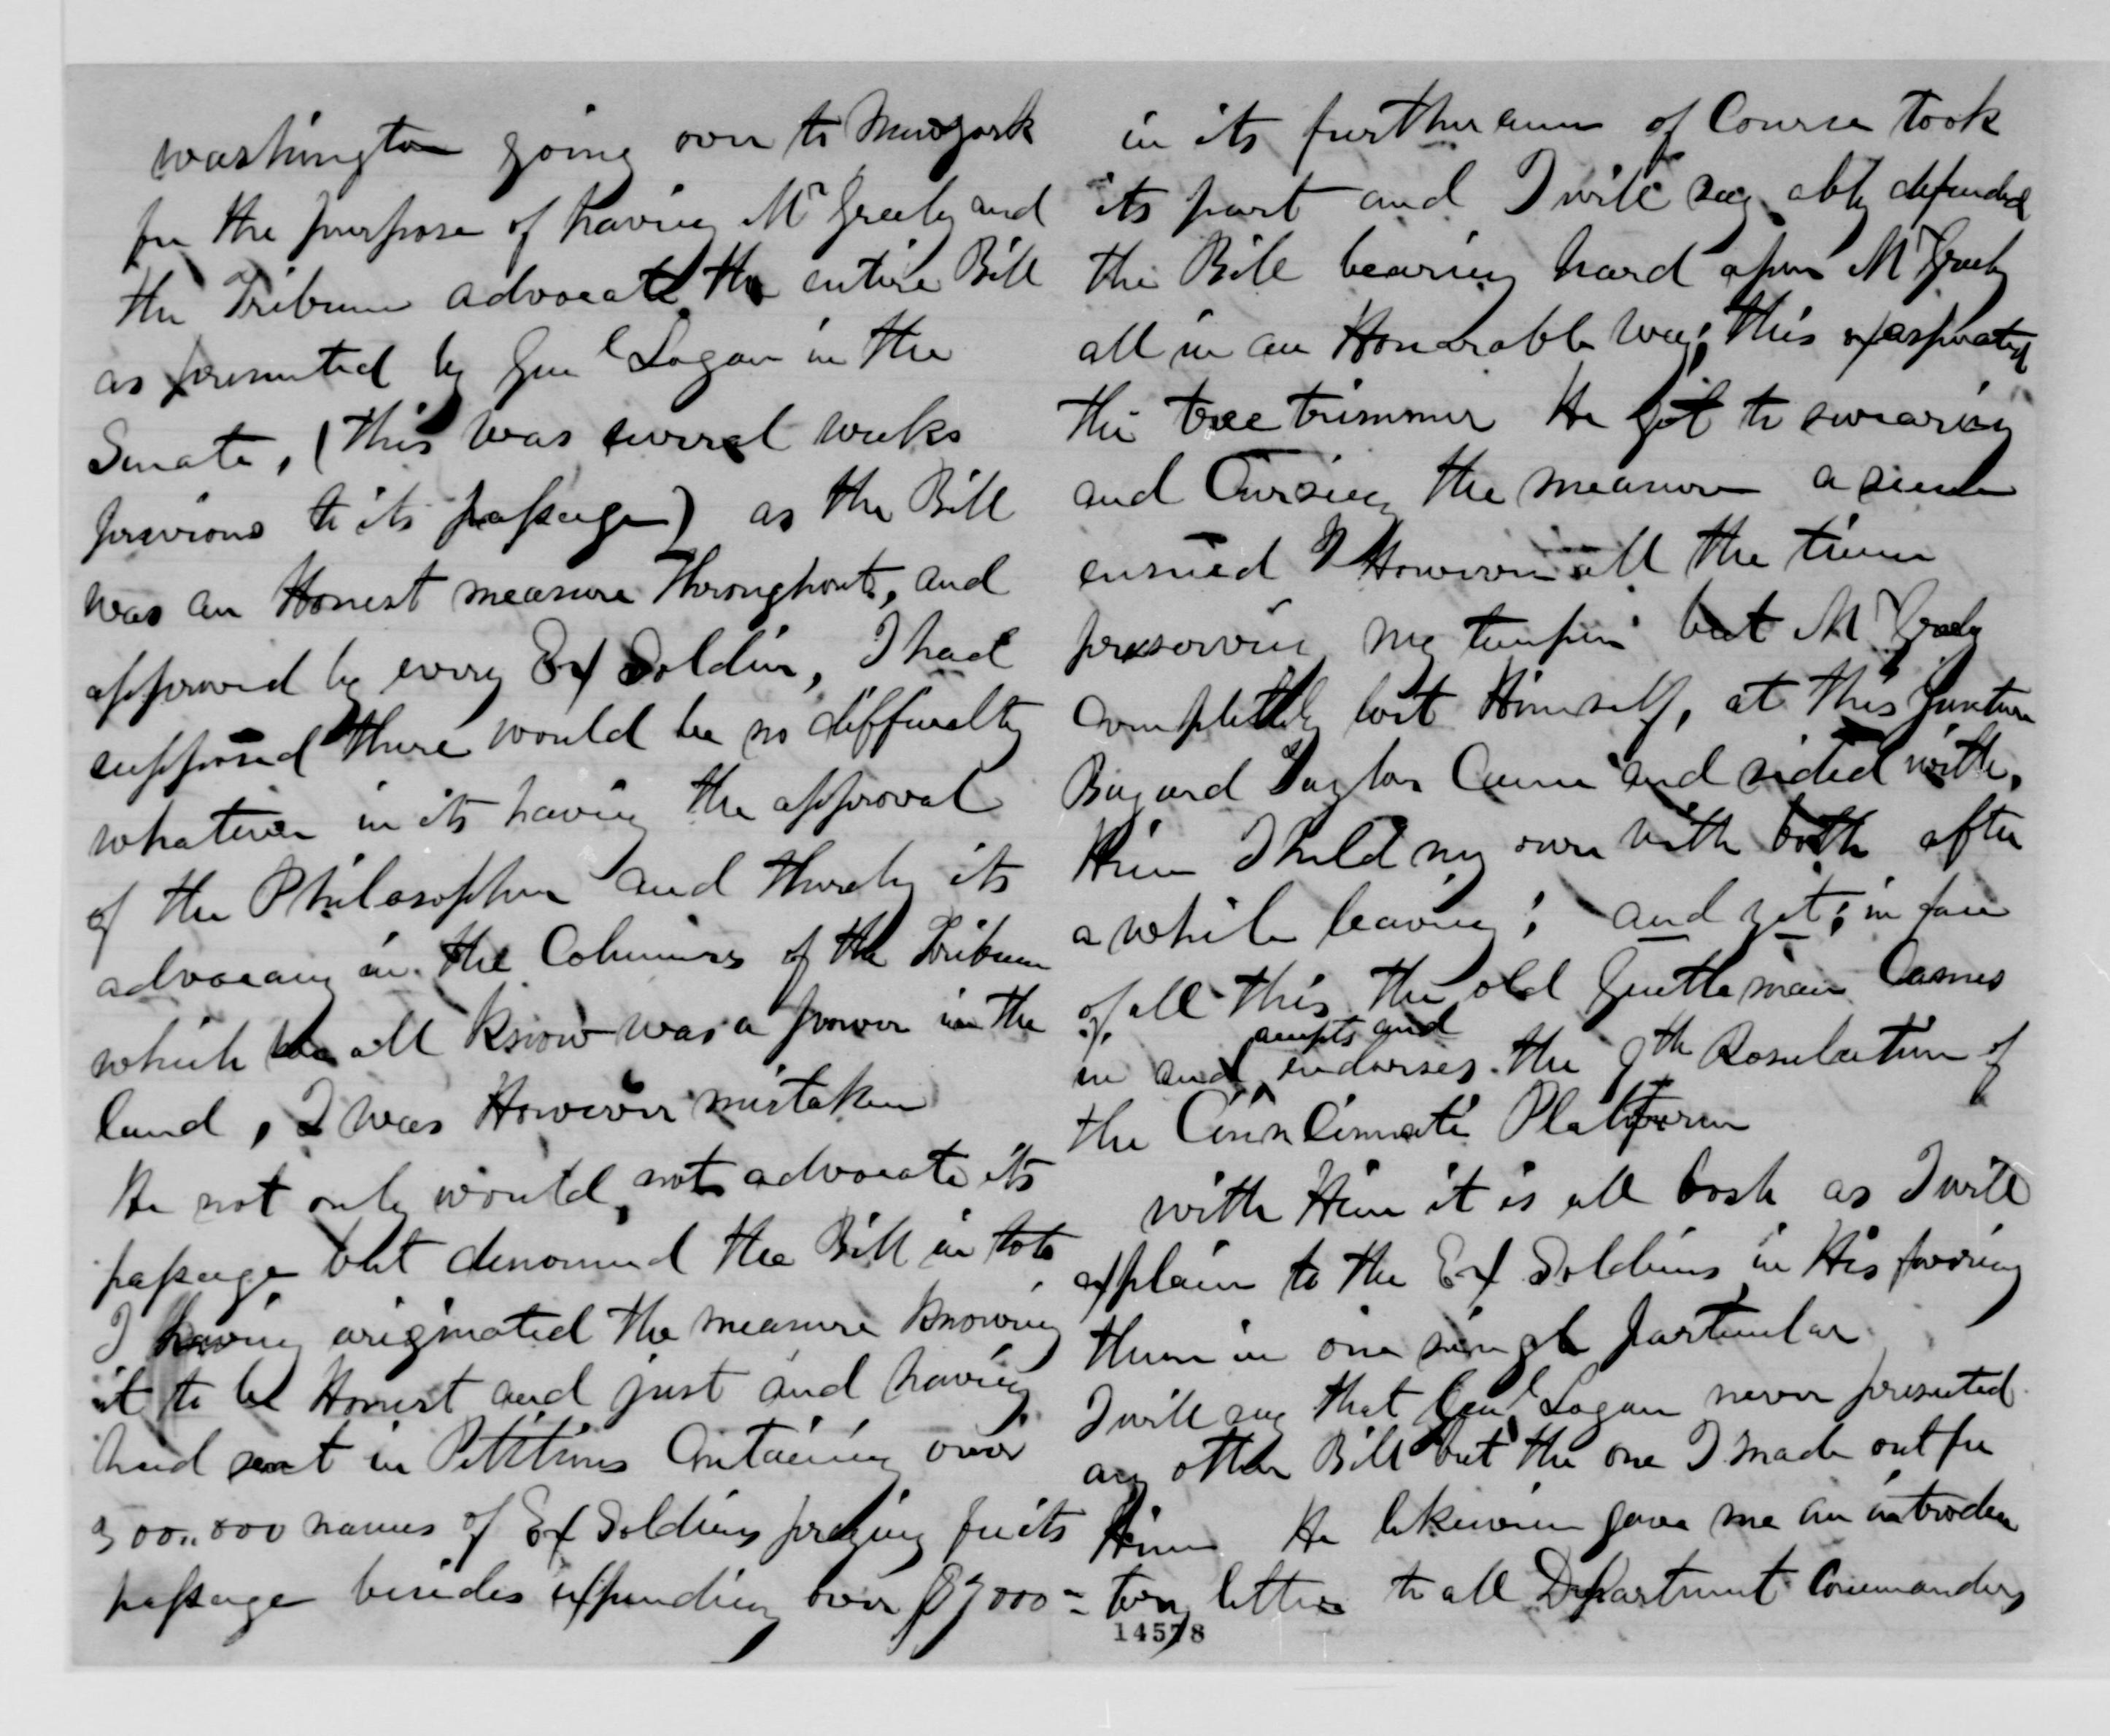 washington going over to Newyork
for the purpose of having Mr Greely and
the Tribune advocate the entire Bill
as presented by Genl Logan in the
Senate, (this was several weeks
previous to its passage) as the Bill
was an Honest measure Throughout, and
approved by every Ex Soldier, I had
supposed there would be no difficulty
whatever in its having the approval
of the Philosopher and thereby its
advocacy in the Columns of the Tribune
which we all know was a power in the
land, I was However mistaken
He not only would not advocate its
passage but denounced the Bill in toto
I having originated the measure knowing
it to be Honest and just and having
had sent in Petitions Containing over
300..000 names of Ex Soldiers praying for its
passage besides expending over $7000 =
in its furtherance of Course took
its part and I will say ably defended
the Bill bearing hard upon Mr Greely
all in an Honorable way; this exasperated
the tree trimmer He got to swearing
and Cursing the measure a scene
ensued I However all the time
preserving my temper but Mr Greely
completely lost Himself, at this juncture
Bayard Taylor Came and sided with
Him I held my own with both after
a while leaving; and yet; in face
of all this the old Gentleman Comes
accepts and
in and endorses the 9th Resolution of
the Cincinnati Platform
with Him it is all bosh as I will
explain to the Ex Soldiers in His favoring
them in one single particular
I will say that Genl Logan never presented
any other Bill but the one I made out for
Him He likewise gave me an introduc
tory letter to all Department Commanders
14578